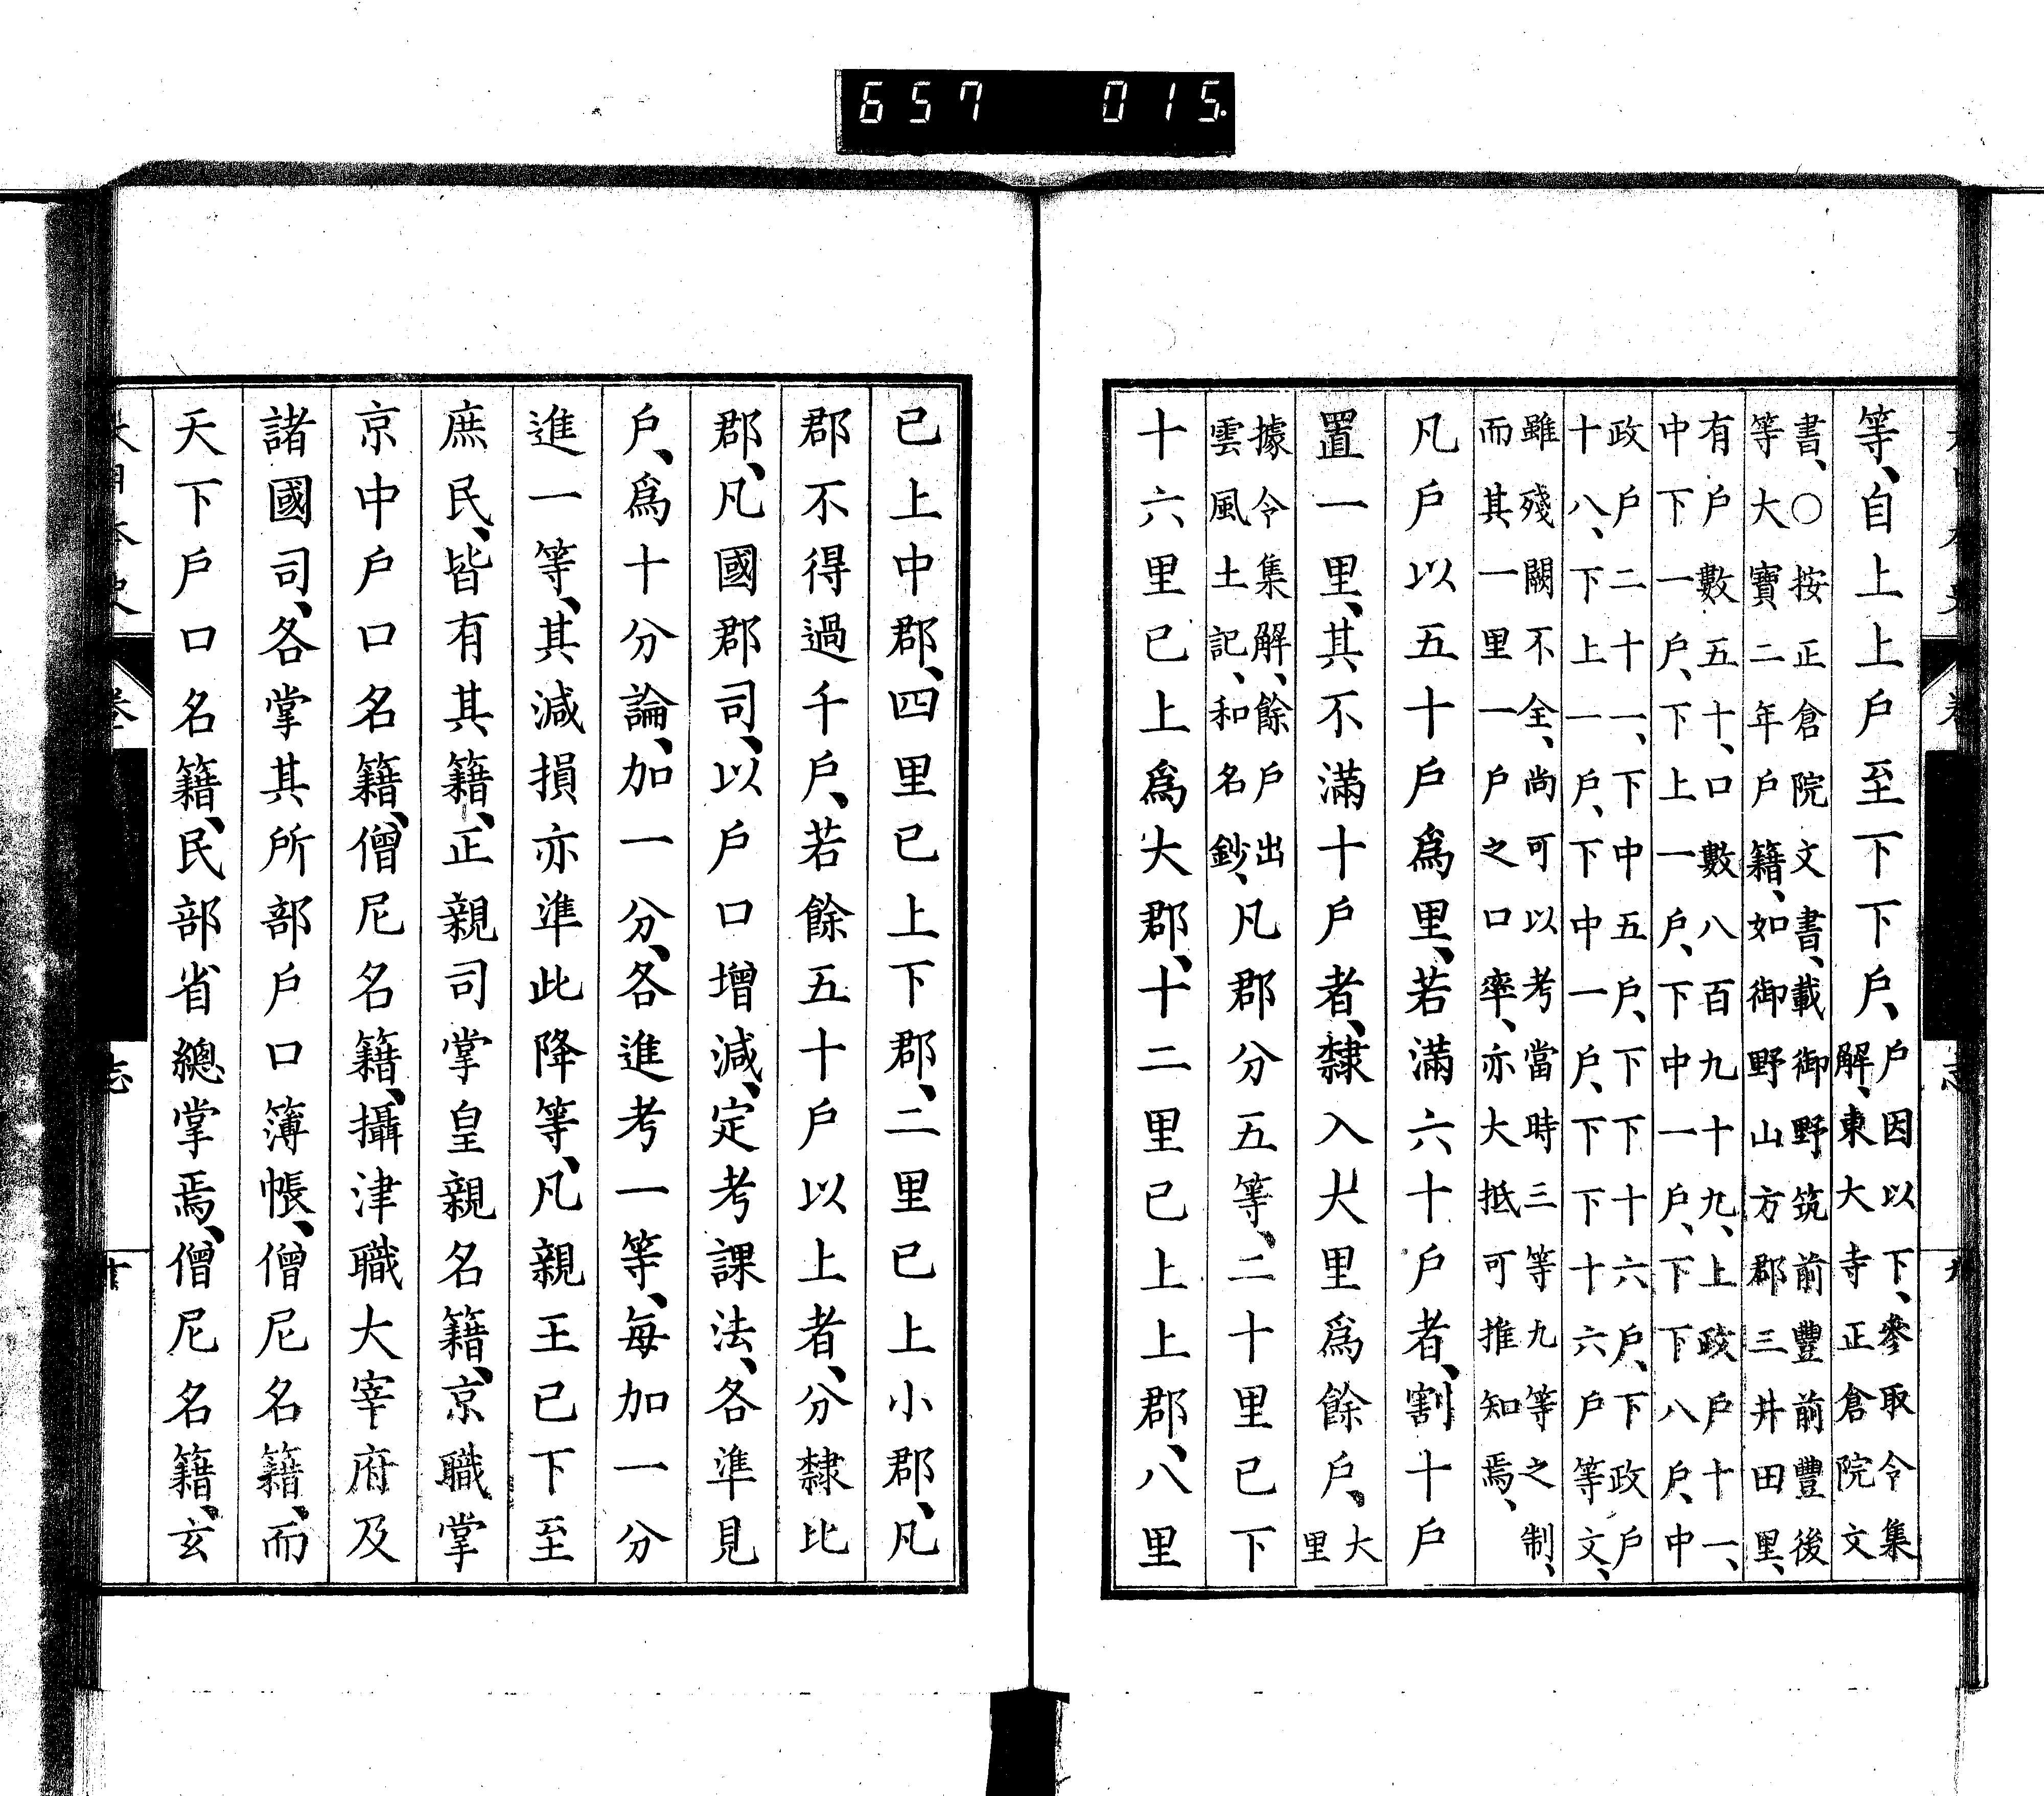 657 015.
等、自上上戶至下下戶、戶因以下、參取令集
解、東大寺正倉院文
書、○按正倉院文書、載御野筑前豐前豐後
等大寶二年戶籍、如御野山方郡三井田里、
有戶數五十、口數八百九十九、上政戶十一、
中下一戶、下上一戶、下中一戶、下下八戶、中
政戶二十一、下中五戶、下下十六戶、下政戶
十八、下上一戶、下中一戶、下下十六戶等文、
雖殘闕不全、尚可以考當時三等九等之制、
而其一里一戶之口率、亦大抵可推知焉、
凡戶以五十戶爲里、若滿六十戶者、割十戶
置一里、其不滿十戶者、隸入大里爲餘戶、大
里
據令集解、餘戶出
雲風土記、和名鈔、凡郡分五等、二十里已下
十六里已上爲大郡、十二里已上上郡、八里
已上中郡、四里已上下郡、二里已上小郡、凡
郡不得過千戶、若餘五十戶以上者、分隸比
郡、凡國郡司、以戶口增減、定考課法、各準見
戶、爲十分論、加一分、各進考一等、每加一分
進一等、其減損亦準此降等、凡親王已下至
庶民、皆有其籍、正親司掌皇親名籍、京職掌
京中戶口名籍、僧尼名籍、攝津職大宰府及
諸國司、各掌其所部戶口簿帳、僧尼名籍、而
天下戶口名籍、民部省總掌焉、僧尼名籍、玄